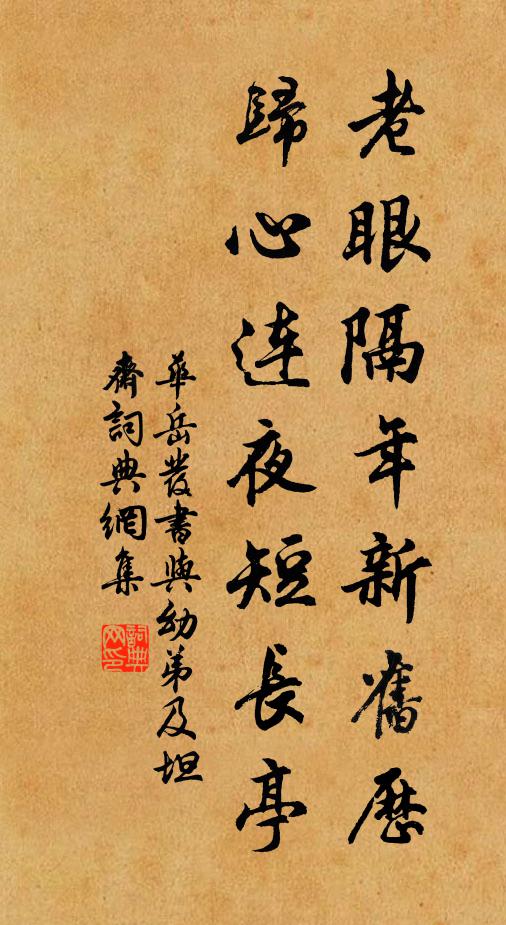 老眼隔年新舊歷
歸心連夜短長亭
華岳發書與幼弟及坦
齋詞典網集
詞典网印